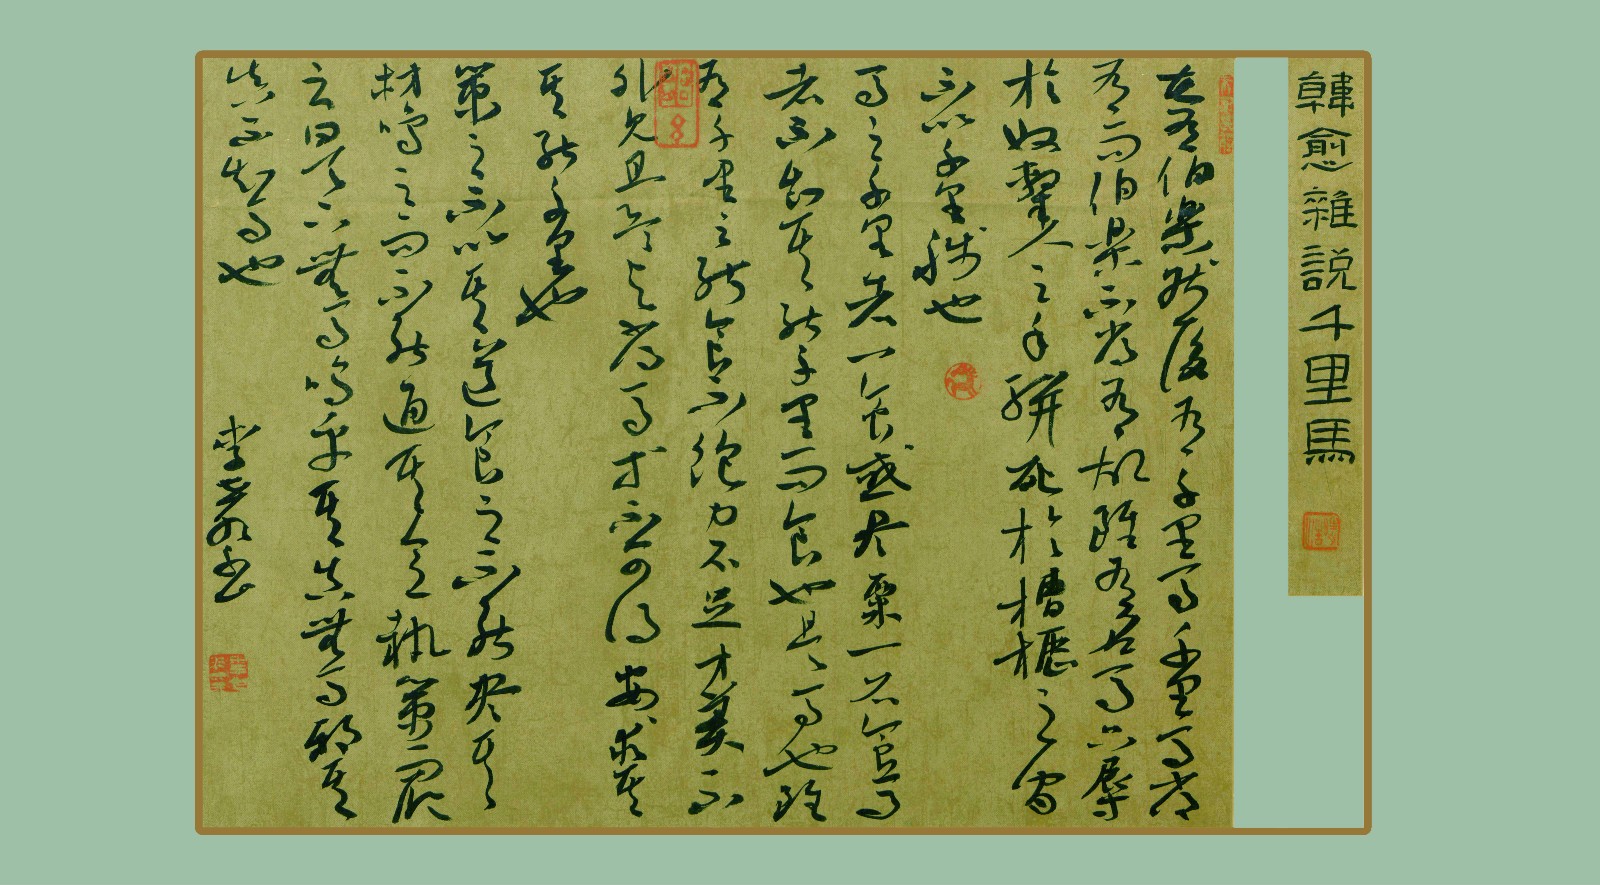 韓愈雜説千里馬
世有伯樂然後有千里馬千里馬常
有而伯樂不常有故雖有名馬只辱
於奴隸人之手駢死於槽櫪之間
不以千里稱也
馬之千里者一食或盡粟一石食馬
者不知其能千里而食也是馬也雖
有千里之能食不飽力不足才美不
外見且欲與常馬等不可得安求其
其能千里也
策之不以其道食之不能盡其
材鳴之而不能通其意執策而臨
之曰天下無馬嗚呼其真無馬邪其
真不知馬也